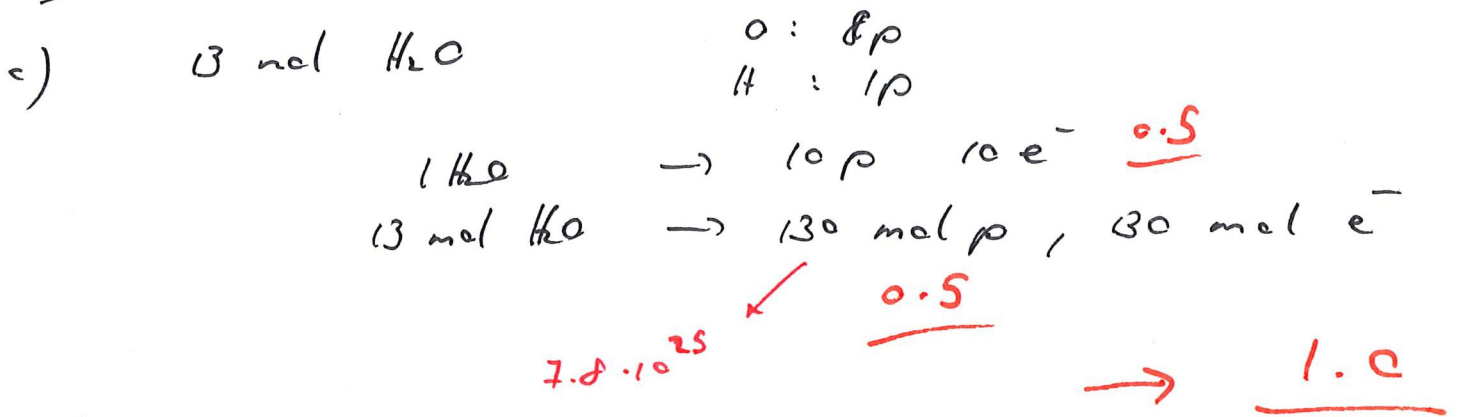 c) 13 mol H₂O O : 8p
H : 1p
1 H₂O → 10 p 10 e⁻ 0.5
13 mol H₂O → 130 mol p , 130 mol e⁻
0.5
7.8 · 10²⁵
→ 1.0